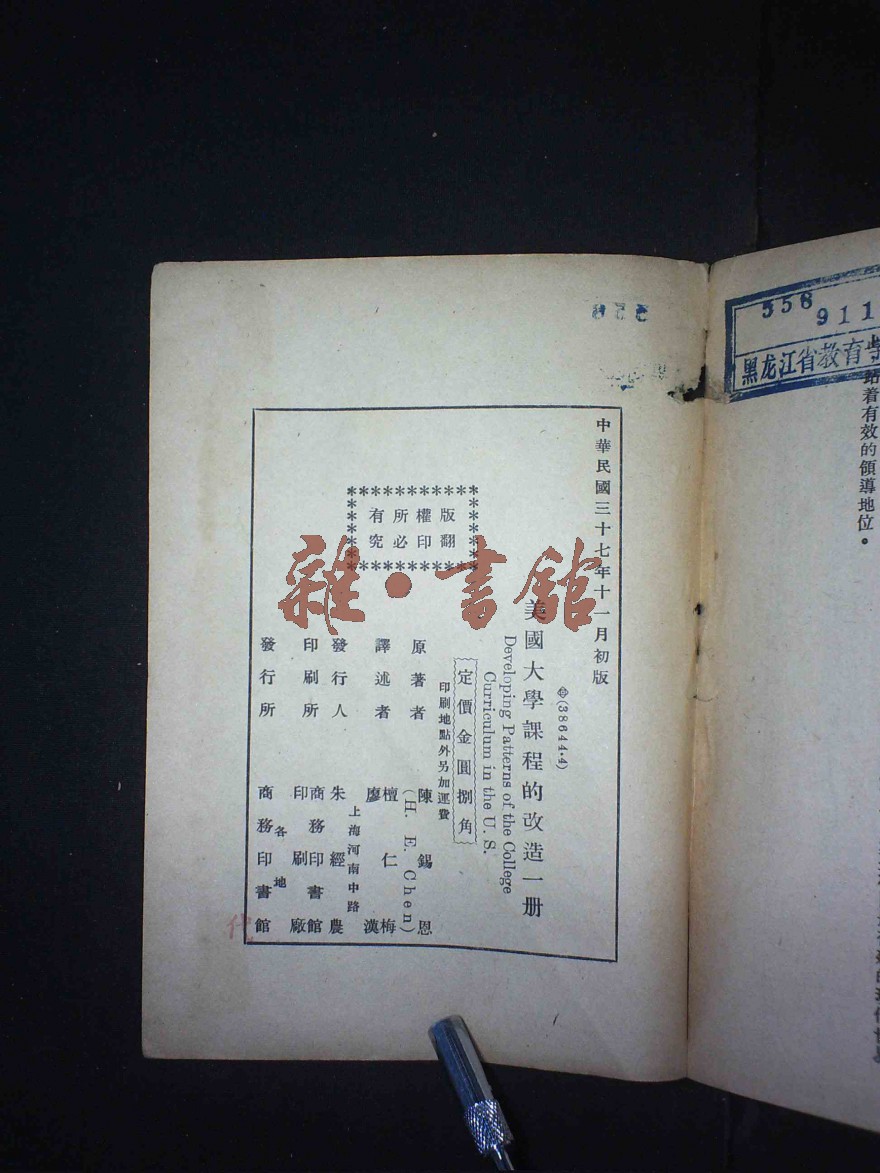 556
911
黑龙江省教育
着有效的領導地位。
中華民國三十七年十一月初版
(38644·4)
美國大學課程的改造一册
Developing Patterns of the College
Curriculum in the U. S.
定價金圓捌角
印刷地點外另加運費
版權所有
翻印必究
原著者 陳錫恩
(H. E. Chen)
譯述者 檀仁梅
廖漢
上海河南中路
發行人 朱經農
印刷所 商務印書館
印刷廠
各地
發行所 商務印書館
代
雜·書館